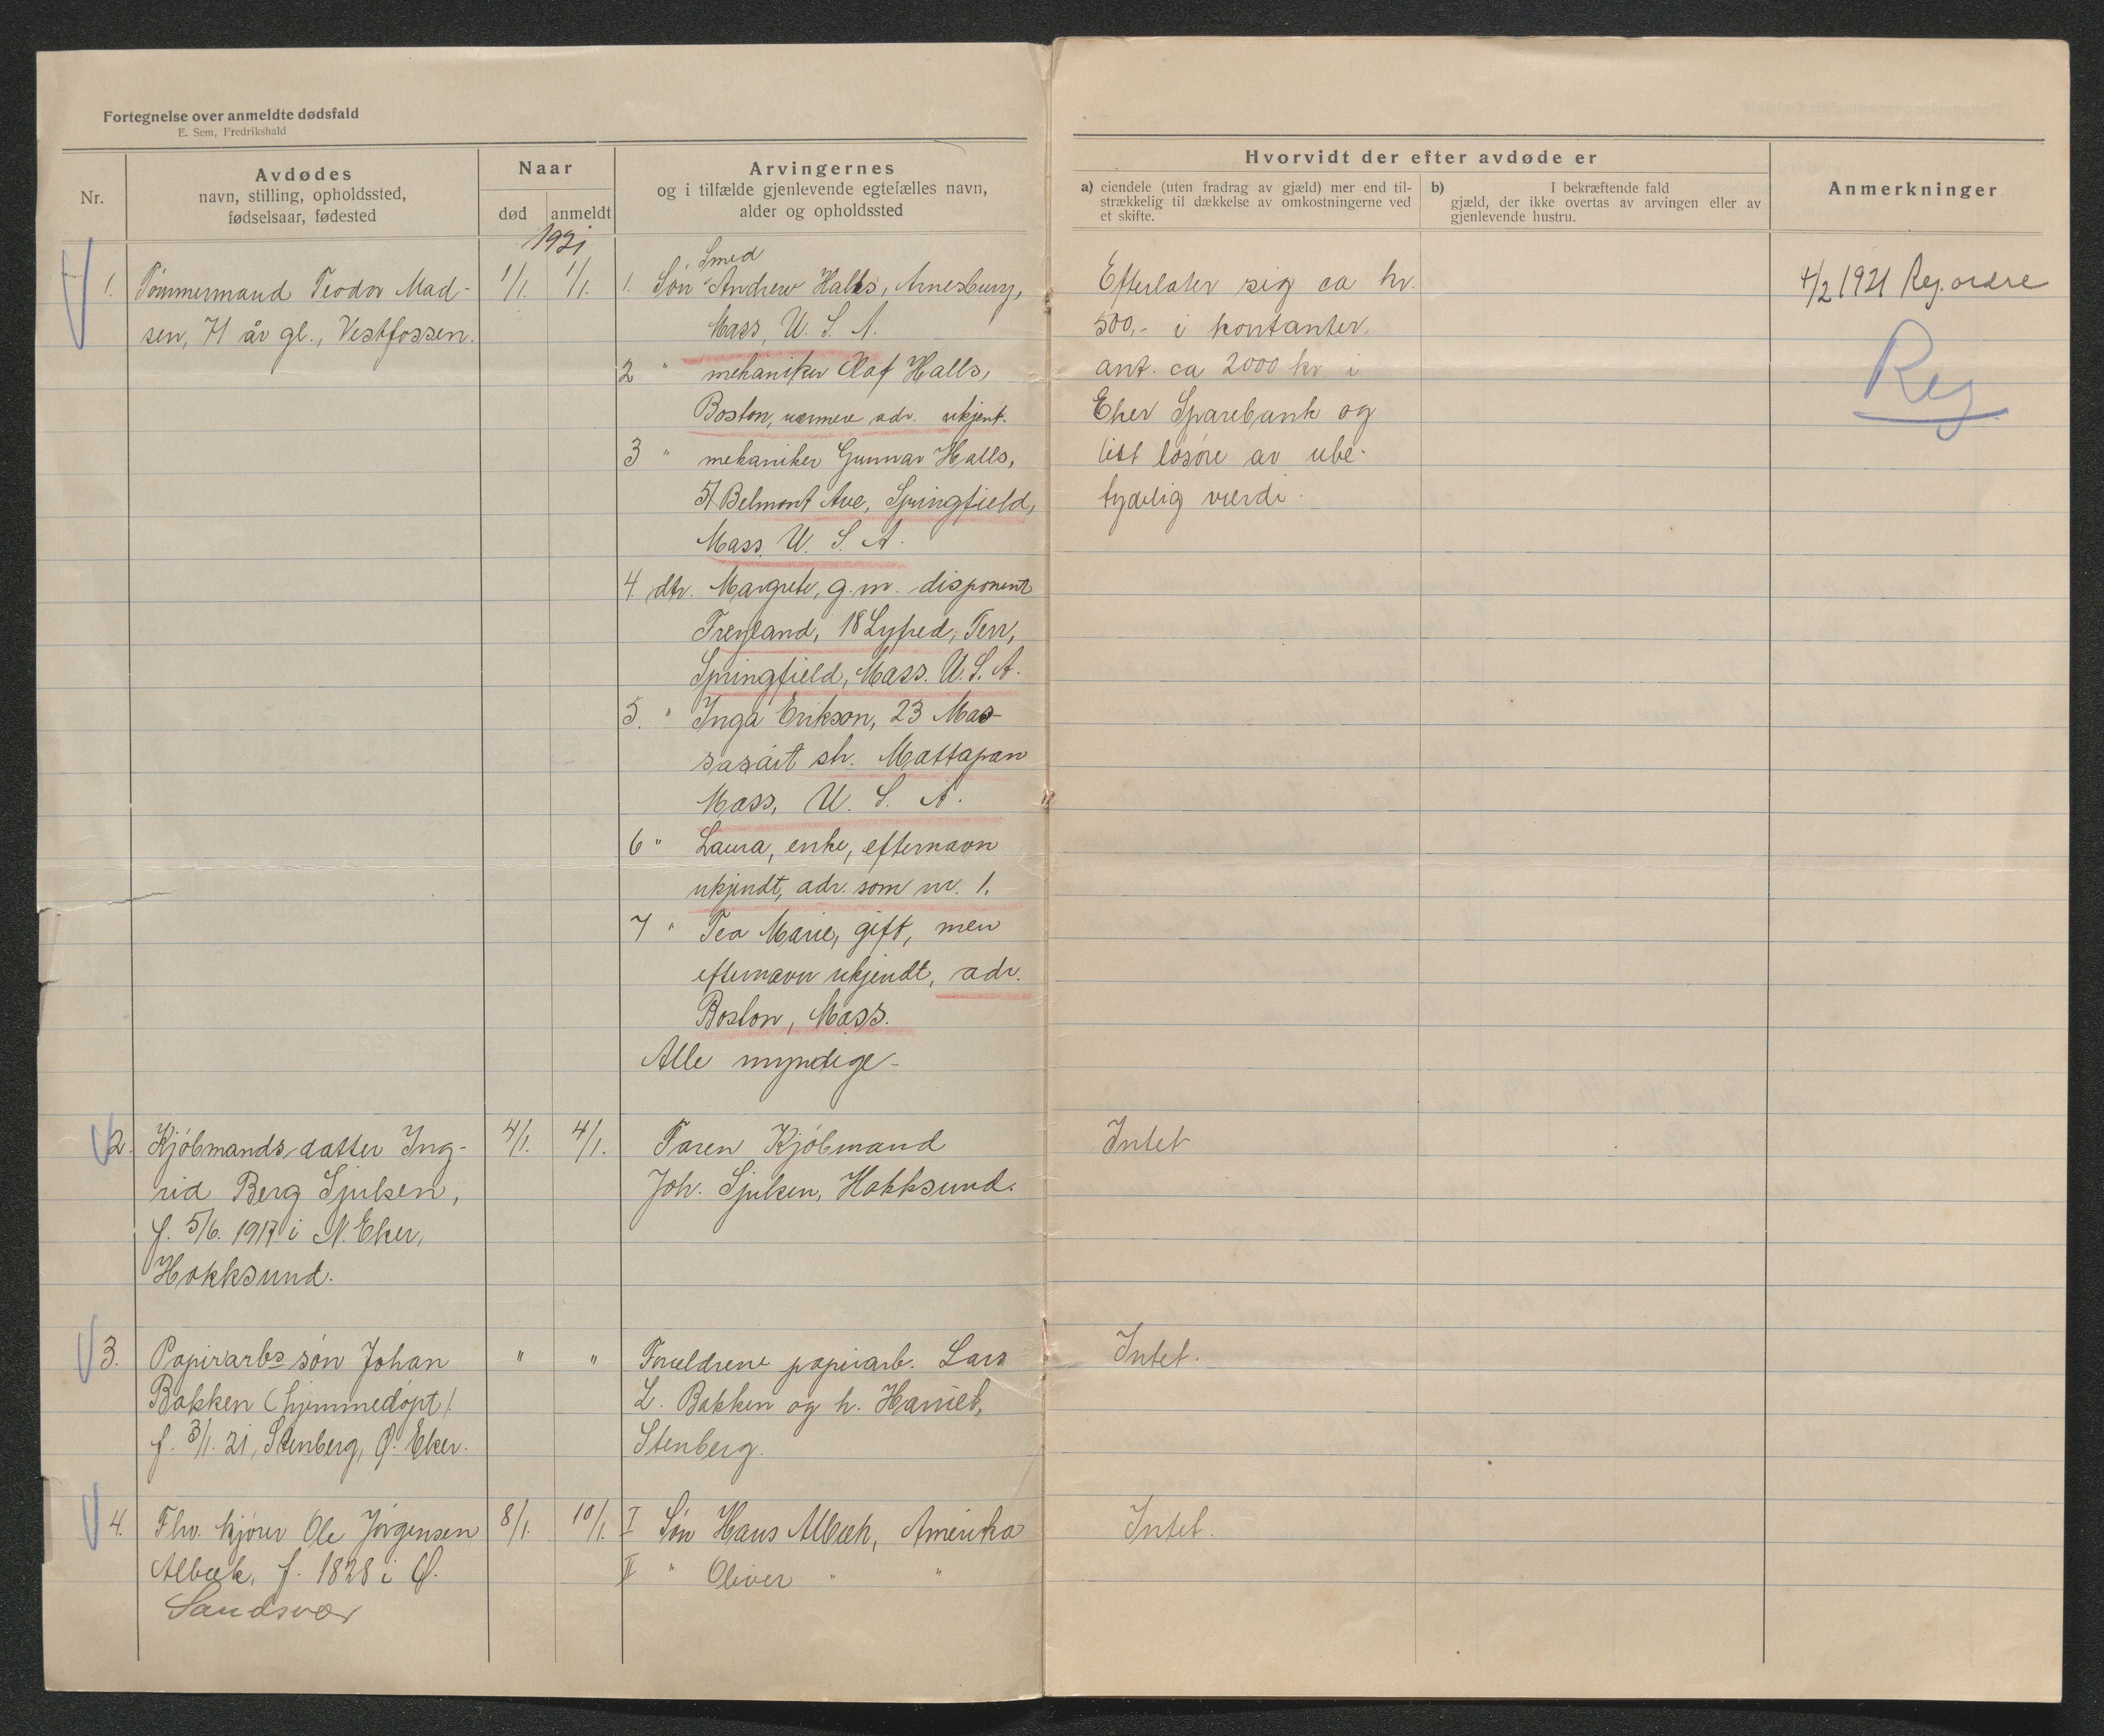 Fortegnelse over anmeldte dødsfald
E. Sem, Fredrikshald
Nr.
Avdødes
navn, stilling, opholdssted,
fødselsaar, fødested
Naar
død
anmeldt
Arvingernes
og i tilfælde gjenlevende egtefælles navn,
alder og opholdssted
Hvorvidt der efter avdøde er
a) eiendele (uten fradrag av gjæld) mer end til-
strækkelig til dækkelse av omkostningerne ved
et skifte.
b) I bekræftende fald
gjæld, der ikke overtas av arvingen eller av
gjenlevende hustru.
Anmerkninger
1921
1. Tømmermand Teodor Mad-
sen, 71 år gl., Vestfossen.
1/1. 1/1.
Smed
1. Søn Andrew Halls, Amesburg,
Mass, U. S. A.
2 " mekaniker Olaf Halls,
Boston, nærmere adr. ukjent.
3 " mekaniker Gunnar Halls,
57 Belmont Ave, Springfield,
Mass. U. S. A.
4. dtr. Margrete, g. m. disponent
Treyland, 18 Lyfred, Terr,
Springfield, Mass. U. S. A.
5. " Inga Erikson, 23 Mas-
sasáit str. Mattapan
Mass, U. S. A.
6 " Laura, enke, efternavn
ukjendt, adr. som nr. 1.
7 " Tea Marie, gift, men
efternavn ukjendt, adr.
Boston, Mass.
Alle myndige-
Efterlater sig ca kr.
500,- i kontanter,
ant. ca 2000 kr i
Eker Sparebank og
litt løsøre av ube-
tydelig værdi.
4/2 1921 Reg. ordre
Reg
2. Kjøbmandsdatter Ing-
rid Berg Sjulsen,
f. 5/6. 1917 i N. Eker,
Hokksund.
4/1. 4/1.
Faren Kjøbmand
Joh. Sjulsen, Hokksund.
Intet
3. Papirarbs søn Johan
Bakken (hjemmedøpt)
f. 3/1. 21, Stenberg, Ø. Eker.
" "
Forældrene papirarb. Lars
L. Bakken og h. Harriet,
Stenberg.
Intet.
4. Fhv. kjører Ole Jørgensen
Albæk, f. 1828 i Ø.
Sandsvær
8/1. 10/1.
I Søn Hans Albæk, Amerika
II " Oliver " "
Intet.